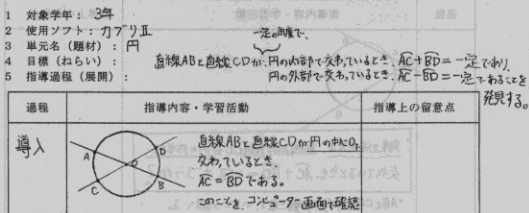 1 対象学年： 3年
2 使用ソフト：カブリⅡ
3 単元名（題材）：円
一定の角度で、
4 目標（ねらい）： 直線ABと直線CDが、円の内部で交わっているとき、AC+BD=一定であり、
5 指導過程（展開）： 円の外部で交わっているとき、AC-BD=一定であることを
発見する。
過程 指導内容・学習活動 指導上の留意点
導入
A D O C B
直線ABと直線CDが円の中心Oで
交わっているとき、
AC=BDである。
このことをコンピューター画面で確認